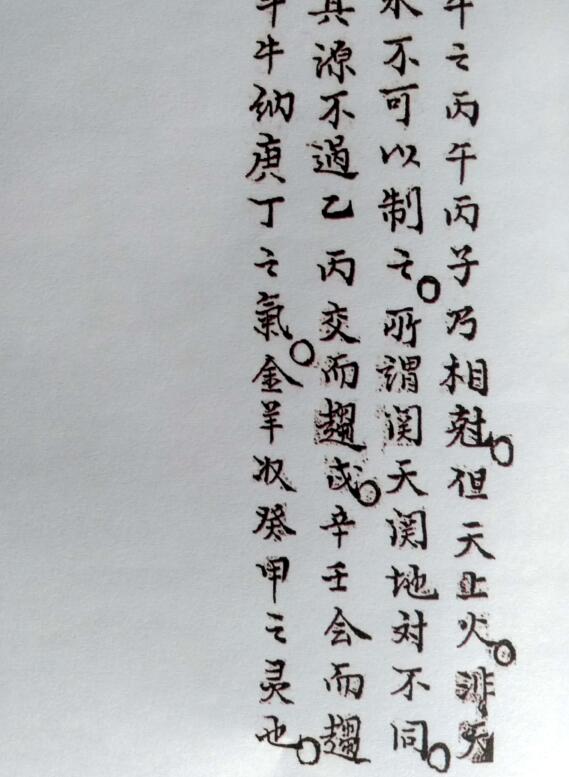 午之丙午丙子乃相尅但天上火非天
水不可以制之所謂関天関地对不同
其源不過乙丙交而趨戌辛壬会而趨
斗牛纳庚丁之氣金羊收癸甲之灵也